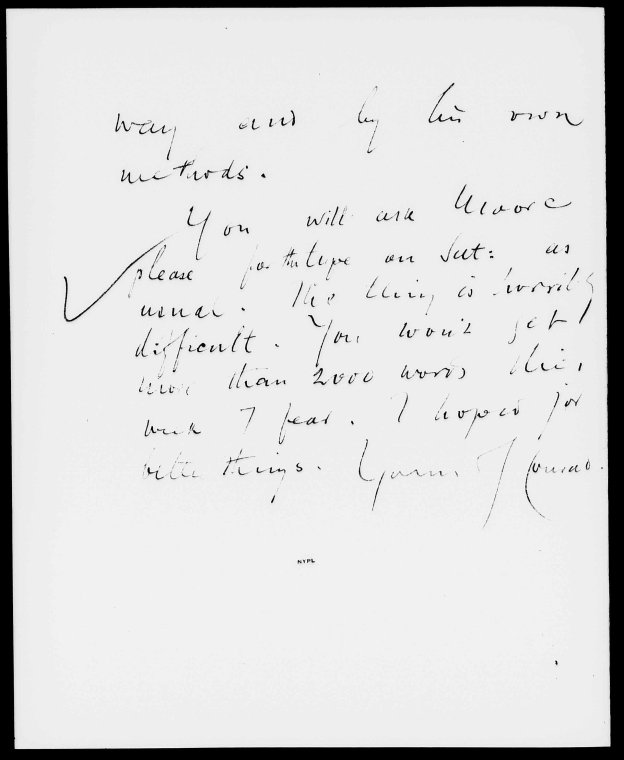 way and by his own
methods.
You will ask Moore
please for the type on Sat: as
usual. The thing is horribly
difficult. You won't get
more than 2000 words this
week I fear. I hoped for
better things. Yours J Conrad.
NYPL